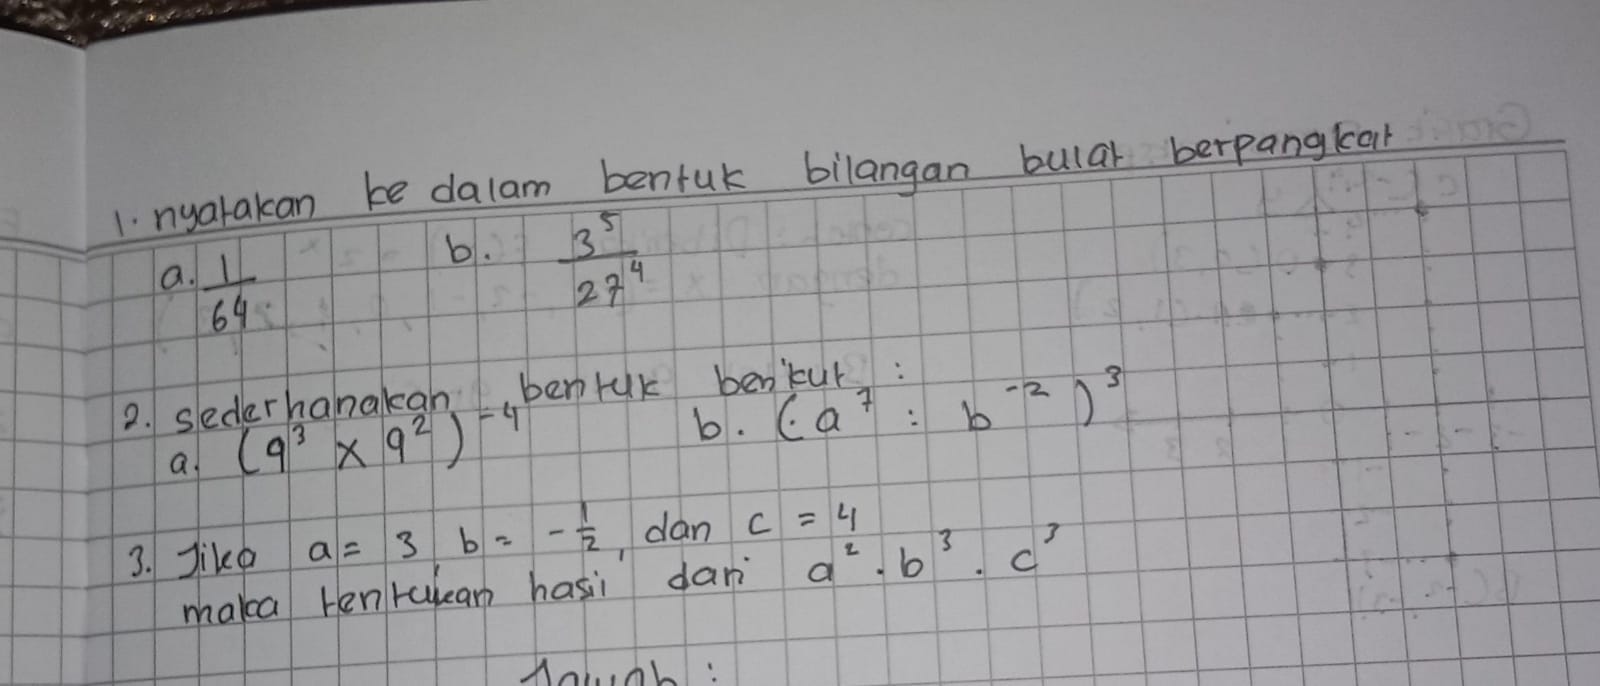 1. nyatakan ke dalam bentuk bilangan bulat berpangkat
a. 1/64 b. 3⁵/27⁴
2. sederhanakan bentuk berikut :
a. (9³ x 9²)⁻⁴ b. (a⁷ : b⁻²)³
3. Jika a = 3, b = -1/2, dan c = 4
maka tentukan hasil dari a² . b³ . c³
Jawab :